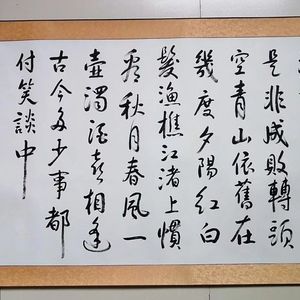 是非成敗轉頭
空青山依舊在
幾度夕陽紅白
髮漁樵江渚上慣
看秋月春風一
壺濁酒喜相逢
古今多少事都
付笑談中